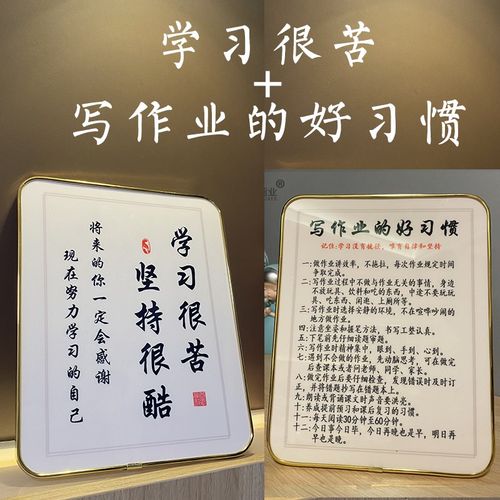 学习很苦
+
写作业的好习惯
学习很苦
坚持很酷
将来的你一定会感谢
现在努力学习的自己
写作业的好习惯
记住:学习没有捷径,唯有自律和坚持
一:做作业讲效率,不拖拉,每次作业规定时间
争取完成。
二:写作业过程中不做与作业无关的事情,身边
不放玩具、饮料和吃的东西,中途不要玩玩
具、吃东西、闲逛、上厕所等。
三:写作业时选择安静的环境,不在喧哗吵闹的
地方做作业。
四:注意坐姿和握笔方法,书写工整认真。
五:下笔前先仔细读题审题。
六:写作业时精神集中,眼到、手到、心到。
七:遇到不会做的作业,先动脑思考,可在做完
后查课本或者问老师、同学、家长。
八:做完作业后要仔细检查,发现错误时及时订
正,并将错题抄写在错题本上。
九:朗读或背诵课文时声音要洪亮。
十:养成提前预习和课后复习的习惯。
十一:每天阅读30分钟至60分钟。
十二:今日事今日毕,今日再晚也是早,明日再
早也是晚。